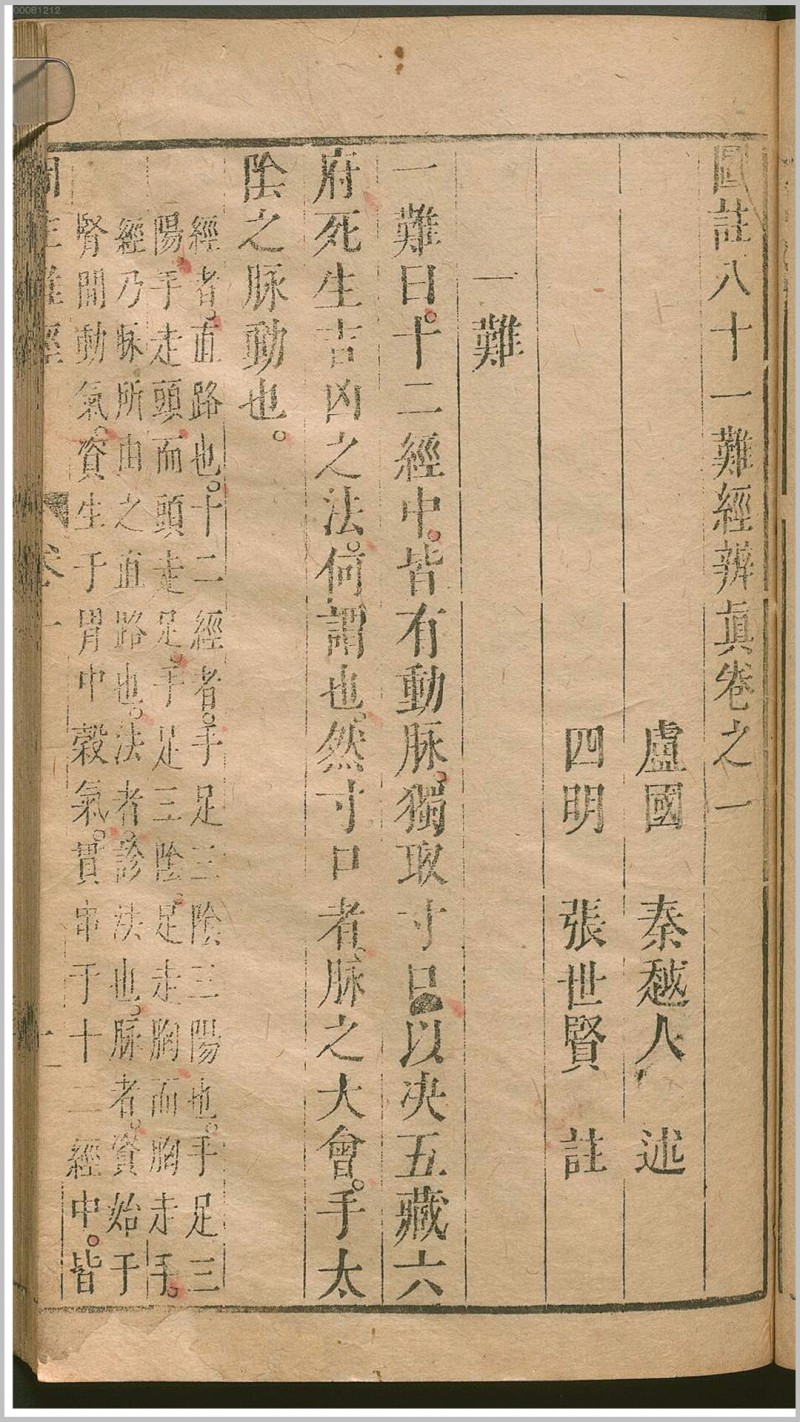 圖註八十一難經辨真卷之一
盧國 秦越人 述
四明 張世賢 註
一難
一難曰。十二經中。皆有動脉。獨取寸口。以決五藏六
府死生吉凶之法。何謂也。然寸口者。脉之大會。手太
陰之脉動也。
經者。直路也。十二經者。手足三陰三陽也。手足三
陽。手走頭。而頭走足。手足三陰。足走胸。而胸走手。
經乃脉所由之直路也。法者。診法也。脉者。資始于
腎間動氣。資生于胃中穀氣。貫串于十二經中。皆
卷一
00081212